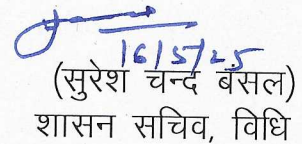 16/5/25
(सुरेश चन्द बंसल)
शासन सचिव, विधि